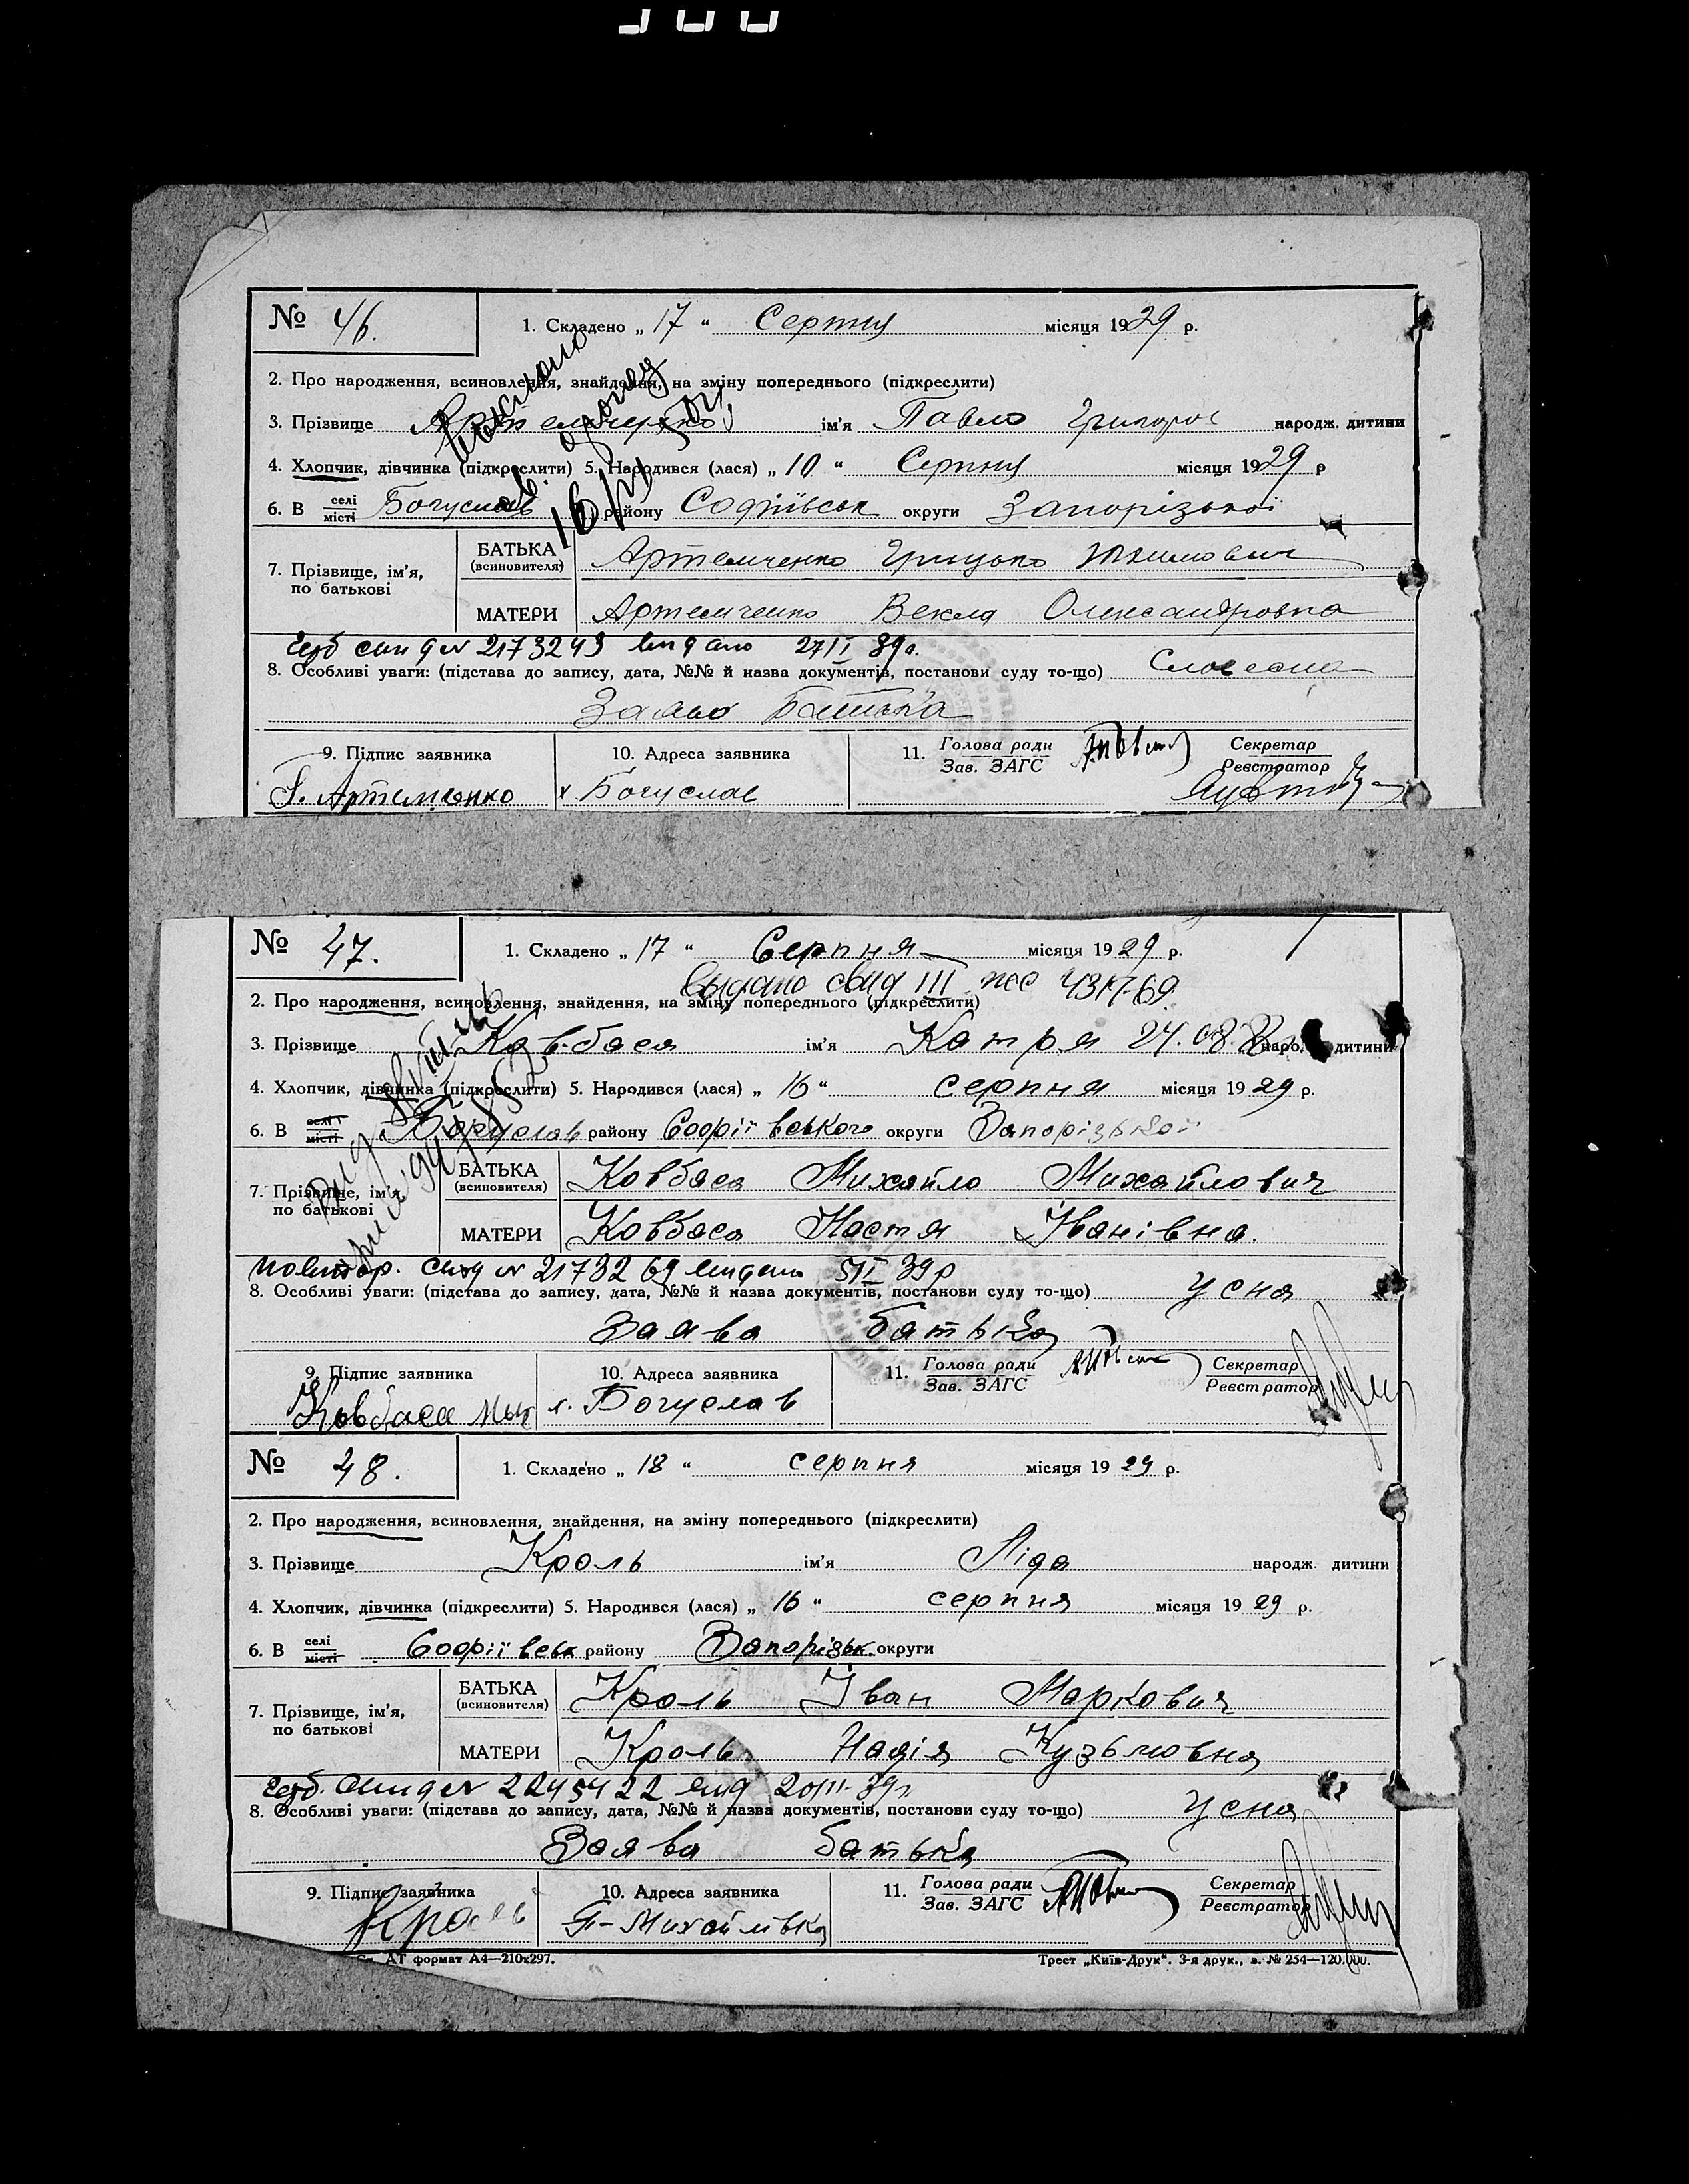 № 46. 1. Складено „ 17 “ Серпня місяця 1929 р.
2. Про народження, всиновлення, знайдення, на зміну попереднього (підкреслити)
3. Прізвище Артемченко ім'я Павло народж. дитини
4. Хлопчик, дівчинка (підкреслити) 5. Народився (лася) „ 10 “ Серпня місяця 1929 р
6. В селі місті Богуслав району Софіївськ округи Запорізької
7. Прізвище, ім'я, по батькові
БАТЬКА (всиновителя) Артемченко Грицько
МАТЕРИ Артемченко Векла Олександровна
№ 2173243 39 р.
8. Особливі уваги: (підстава до запису, дата, №№ й назва документів, постанови суду то-що) Словесна
Заява Батька
9. Підпис заявника 10. Адреса заявника 11. Голова ради Зав. ЗАГС Секретар Реєстратор
Г. Артемченко Богуслав
№ 47. 1. Складено „ 17 “ Серпня місяця 1929 р.
выдано свид III
2. Про народження, всиновлення, знайдення, на зміну попереднього (підкреслити)
3. Прізвище Ковбаса ім'я Катря 24.08. народ. дитини
4. Хлопчик, дівчинка (підкреслити) 5. Народився (лася) „ 16 “ серпня місяця 1929 р.
6. В селі місті Богуслав району Софіївського округи Запорізької
7. Прізвище, ім'я по батькові
БАТЬКА (всиновителя) Ковбаса Михайло Михайлович
МАТЕРИ Ковбаса Настя Іванівна.
повтор. № 2173269 39 р
8. Особливі уваги: (підстава до запису, дата, №№ й назва документів, постанови суду то-що) Усна
Заява батька
9. Підпис заявника 10. Адреса заявника 11. Голова ради Зав. ЗАГС Секретар Реєстратор
Ковбаса х. Богуслав
№ 48. 1. Складено „ 18 “ серпня місяця 1929 р.
2. Про народження, всиновлення, знайдення, на зміну попереднього (підкреслити)
3. Прізвище Кроль ім'я Ліда народж. дитини
4. Хлопчик, дівчинка (підкреслити) 5. Народився (лася) „ 16 “ серпня місяця 1929 р.
6. В селі місті Софіївськ району Запорізьк. округи
7. Прізвище, ім'я, по батькові
БАТЬКА (всиновителя) Кроль Іван Маркович
МАТЕРИ Кроль Надія Кузьмовна
№ 2245422
8. Особливі уваги: (підстава до запису, дата, №№ й назва документів, постанови суду то-що) Усна
Заява батька
9. Підпис заявника 10. Адреса заявника 11. Голова ради Зав. ЗАГС Секретар Реєстратор
Кроль Михайлівка
АТ формат А4—210х297. Трест „Київ-Друк“. 3-я друк., з. № 254—120.000.